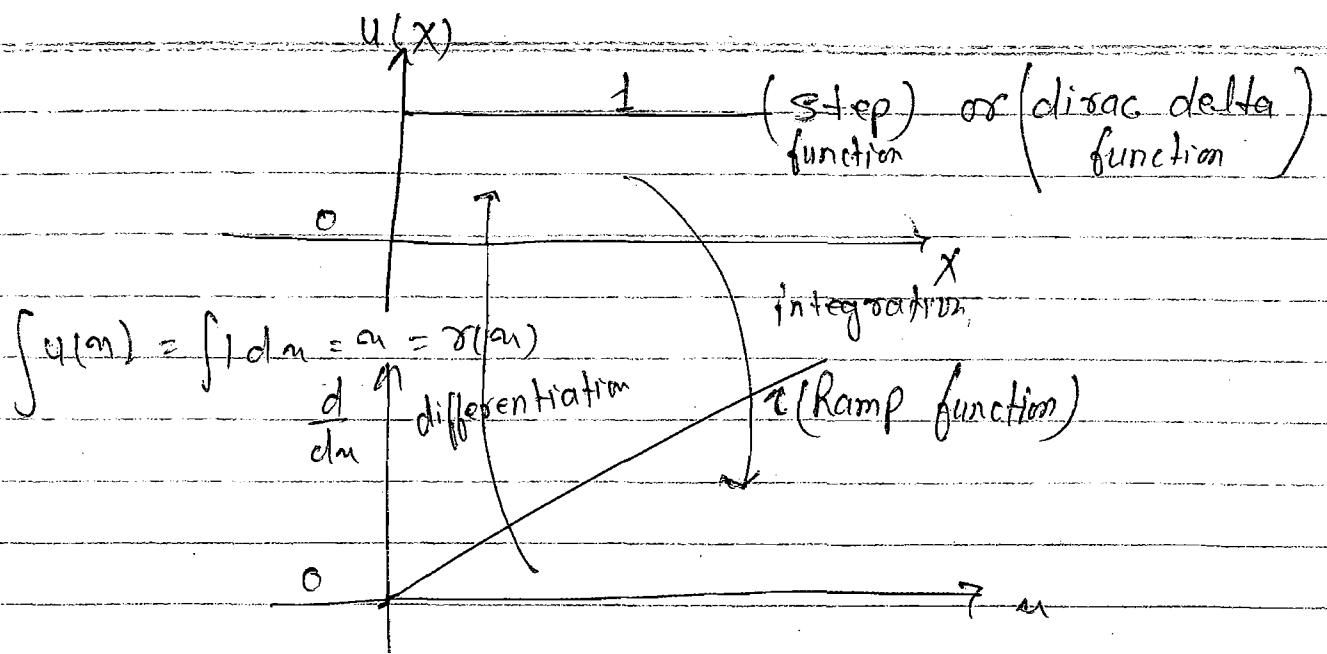 u(x)
1 (step function) or (dirac delta function)
0
x
integration
∫u(x) = ∫1 dx = x = r(x)
d/dx differentiation
r(Ramp function)
0
x